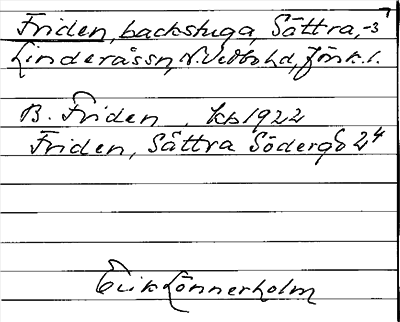 Friden, backstuga, Sättra, -3
Linderåssn, N. Vedbo hd, Jönk. l.
B. Friden . kb 1922
Friden, Sättra Södergd 2⁴
Erik Lönnerholm